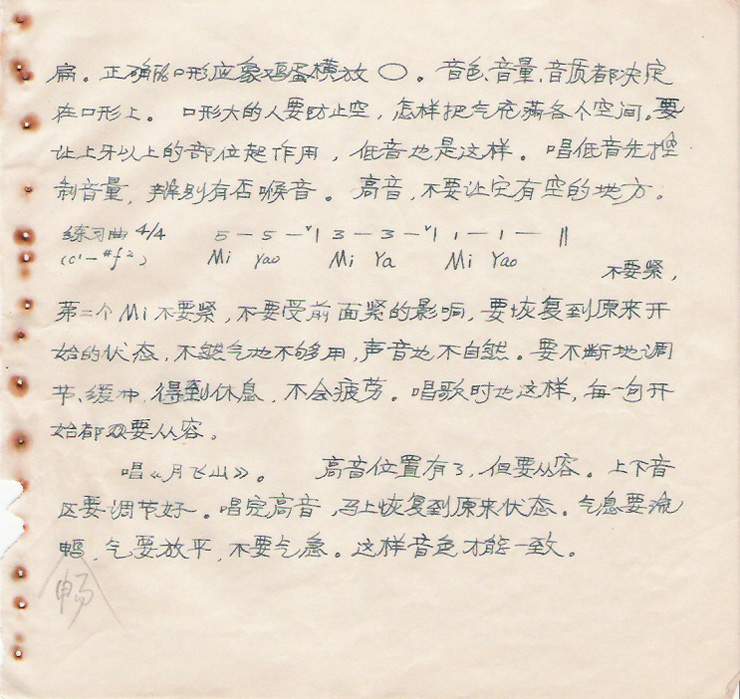 扁。正确的口形应象鸡蛋横放○。音色、音量、音质都决定
在口形上。口形大的人要防止空，怎样把气充满各个空间。要
让上牙以上的部位起作用，低音也是这样。唱低音先控
制音量，辨别有否喉音。高音，不要让它有空的地方。
练习曲 4/4 5－5－ˇ| 3－3－ˇ| 1－1－ ‖
(c¹－#f²) Mi Yao Mi Ya Mi Yao 不要紧，
第二个Mi不要紧，不要受前面紧的影响，要恢复到原来开
始的状态，不然气也不够用，声音也不自然。要不断地调
节、缓冲，得到休息，不会疲劳。唱歌时也这样，每一句开
始都要从容。
唱《月飞山》。 高音位置有了，但要从容。上下音
区要调节好。唱完高音，马上恢复到原来状态。气息要流
畅，气要放平，不要气急。这样音色才能一致。
畅